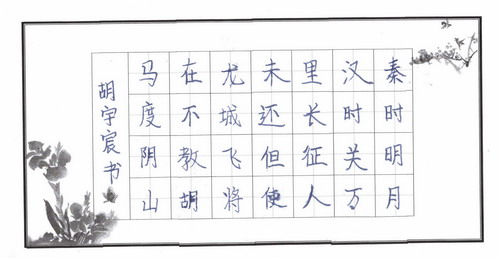 秦时明月
汉时关万
里长征人
未还但使
龙城飞将
在不教胡
马度阴山
胡宇宸书